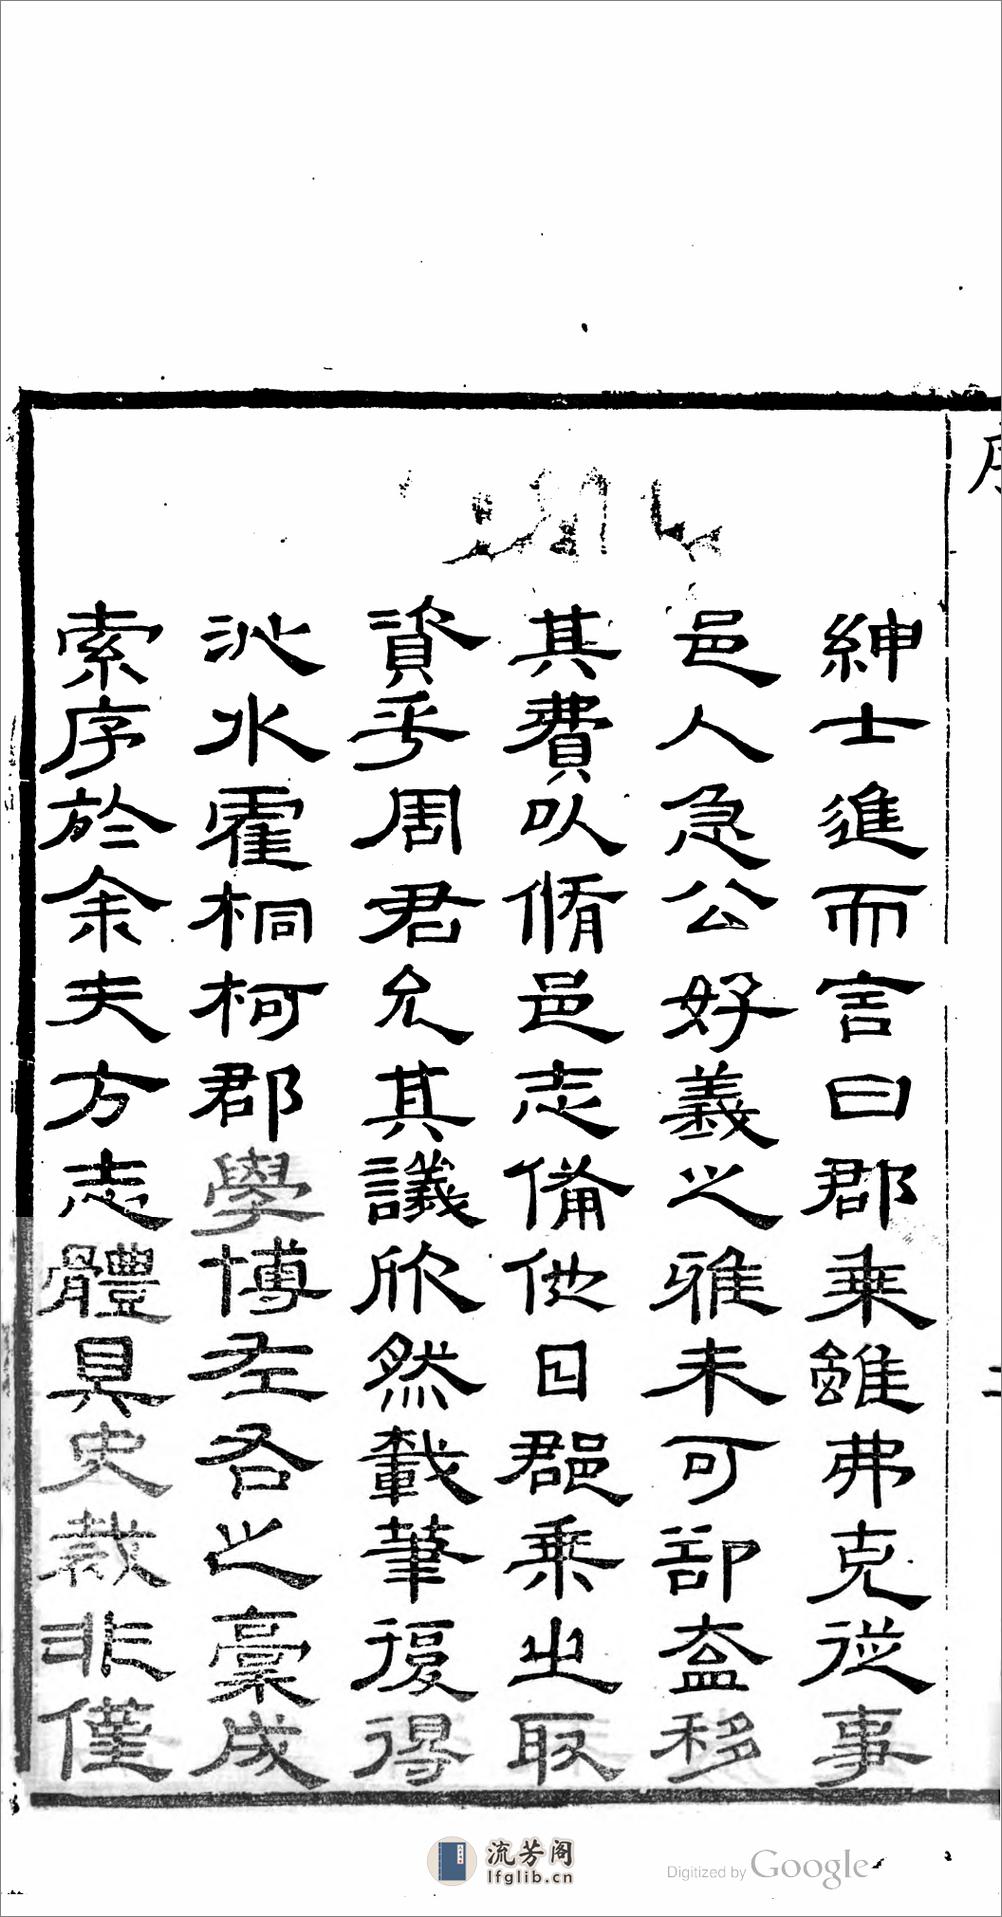 紳士進而言曰郡乗雖弗克從事
邑人急公好義之雅未可郤盍移
其費以脩邑志備他日郡乗之取
資乎周君允其議欣然載筆復得
沁水霍桐柯郡學博左右之稾成
索序於余夫方志體具史裁非僅
流芳阁
lfglib.cn
Digitized by Google